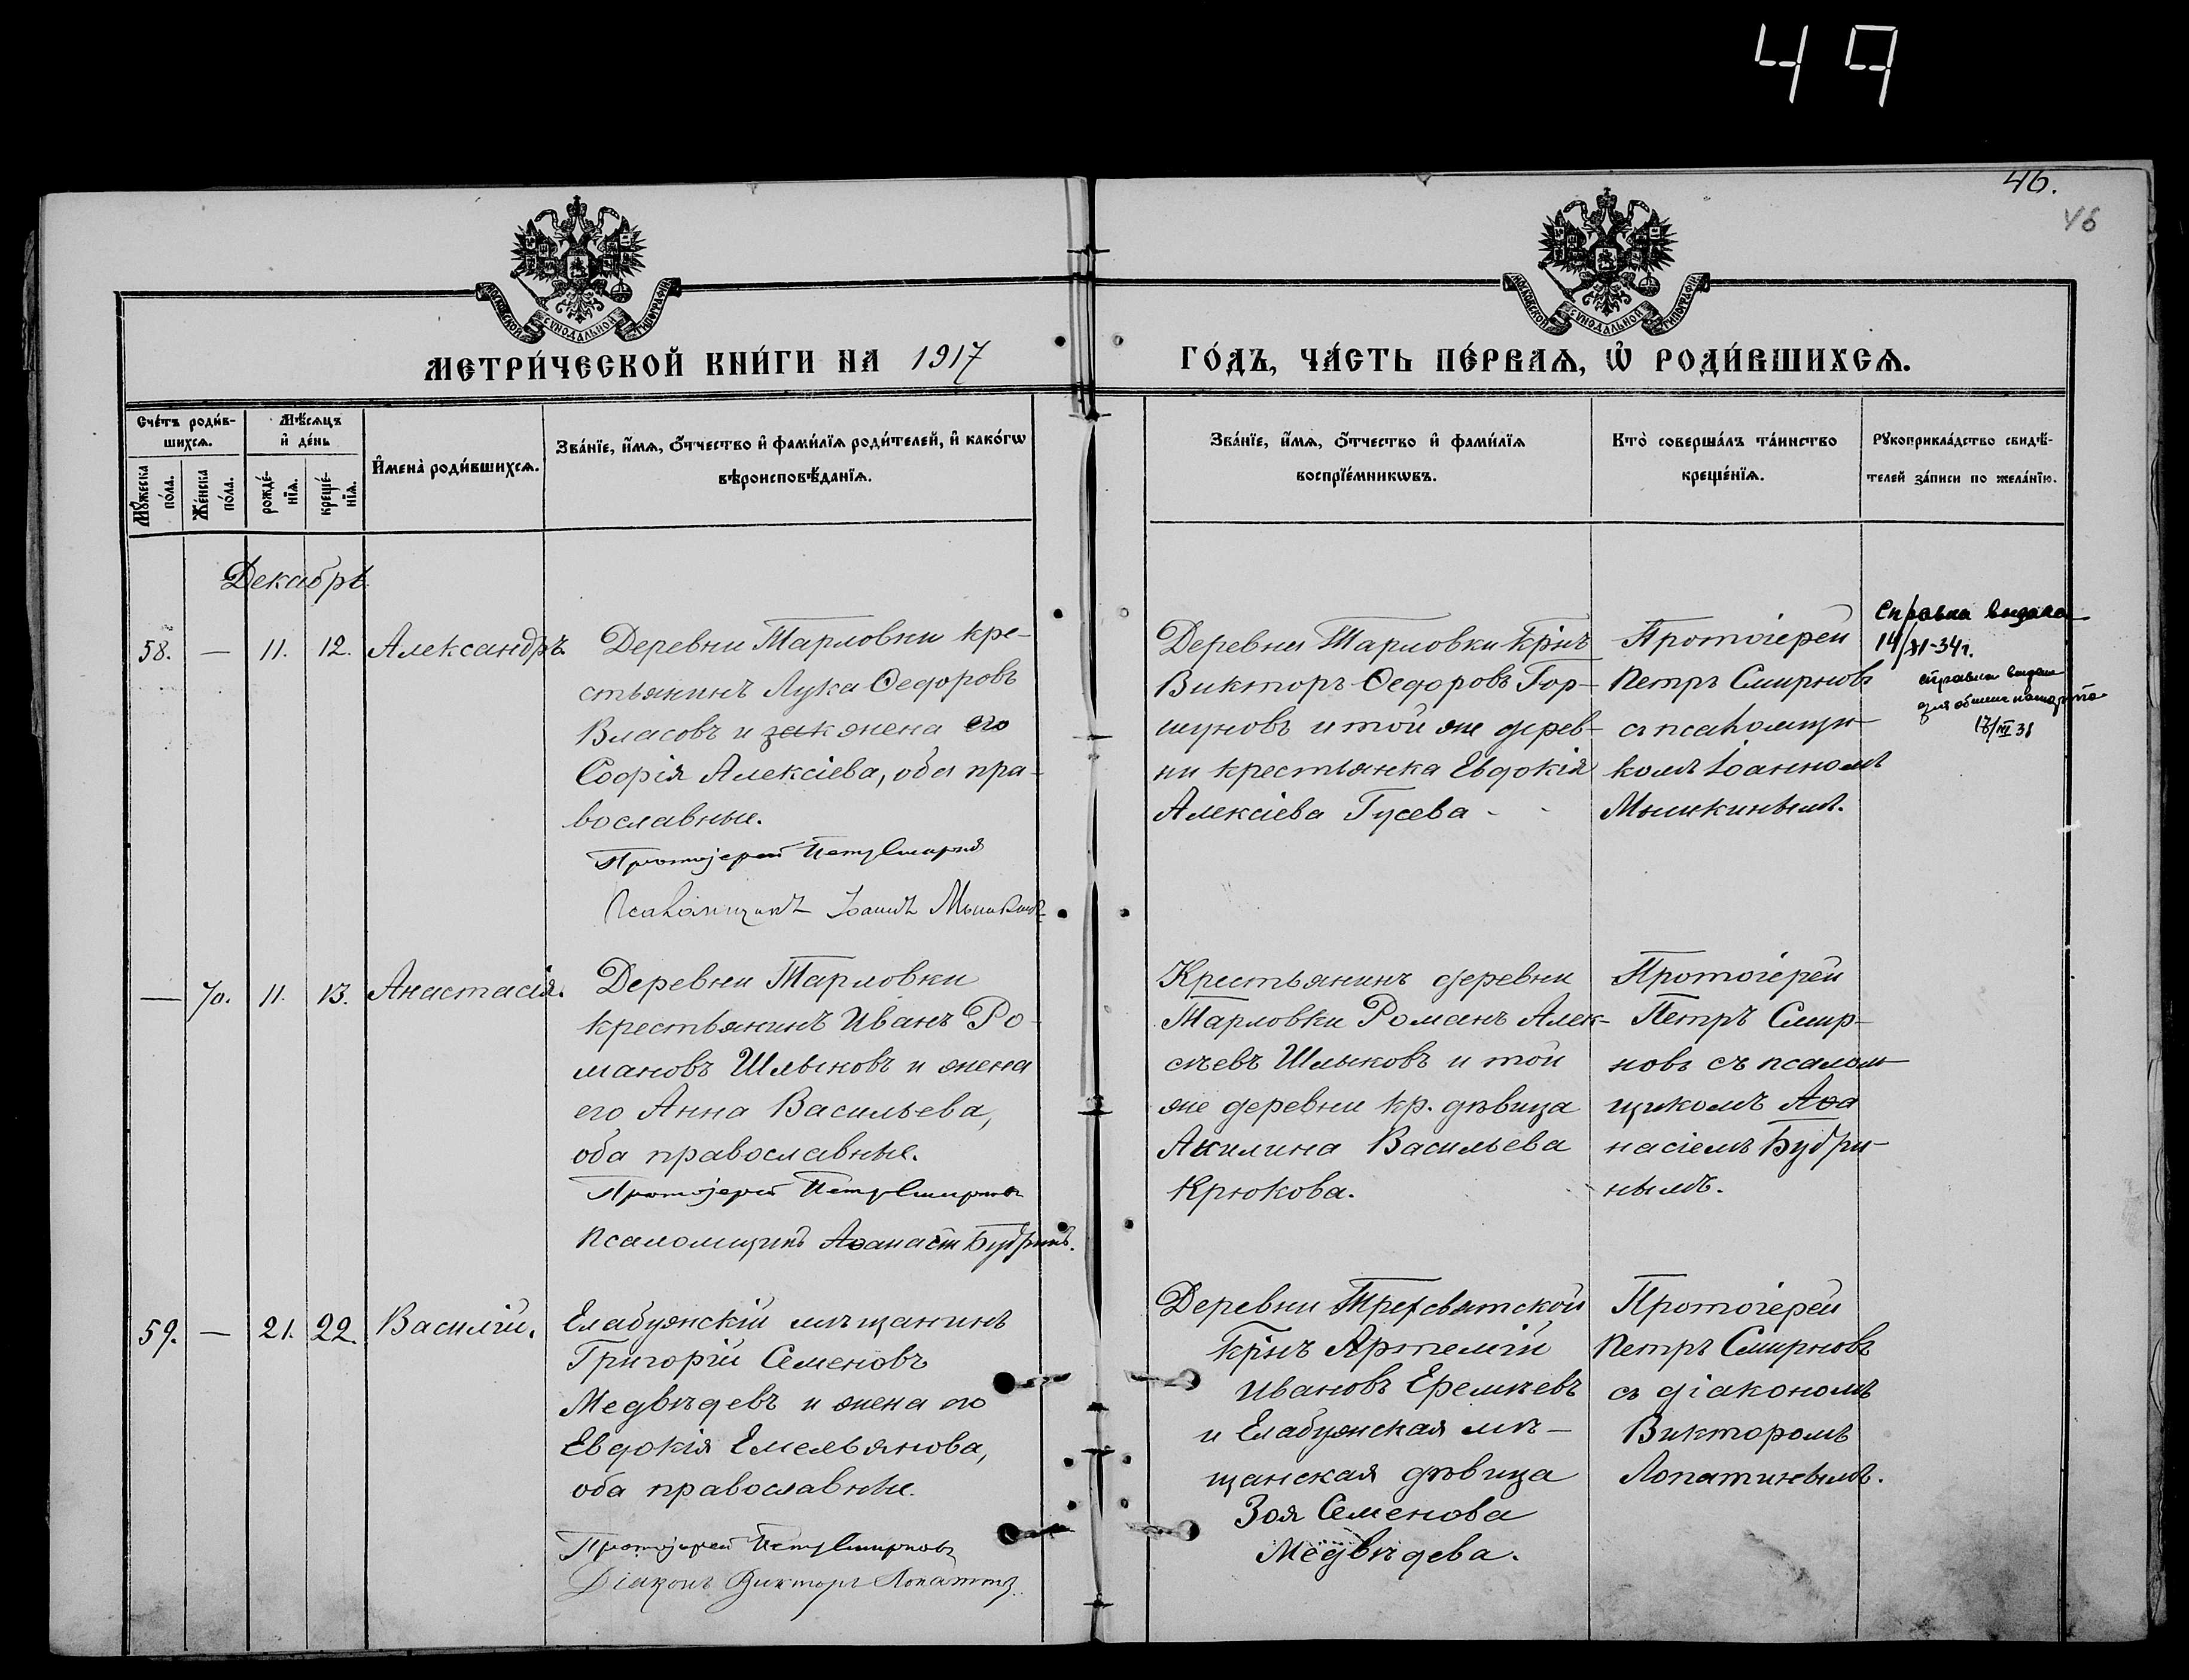 49
46.
46
МОСКОВСКОЙ СѴНОДАЛЬНОЙ ТИПОГРАФІИ
МОСКОВСКОЙ СѴНОДАЛЬНОЙ ТИПОГРАФІИ
МЕТРИ́ЧЕСКОЙ КНИ́ГИ НА 1917
ГО́ДЪ, ЧА́СТЬ ПЕ́РВАѦ, Ѡ҆ РОДИ́ВШИХСѦ.
Сче́тъ роди́в-
шихсѧ.
Мꙋ́жеска
по́ла.
Же́нска
по́ла.
Мѣ́сѧцъ
и҆ де́нь
рожде́-
нїѧ.
креще́-
нїѧ.
И҆мена̀ роди́вшихсѧ.
Зва́нїе, и҆́мѧ, ѻ҆́тчество и҆ фами́лїѧ роди́телей, и҆ како́гѡ
вѣроисповѣ́данїѧ.
Зва́нїе, и҆́мѧ, ѻ҆́тчество и҆ фами́лїѧ
воспрїе́мникѡвъ.
Кто̀ соверша́лъ та́инство
креще́нїѧ.
Рꙋкоприкла́дство свидѣ́-
телей за́писи по жела́нїю.
Декабрь
58.
—
11.
12.
Александръ.
Деревни Тарловки кре-
стьянинъ Лука Ѳедоровъ
Власовъ и зак жена его
Софія Алексіева, оба пра-
вославные.
Протоіерей Петръ Смирновъ
Псаломщикъ Іоаннъ Мышкинъ
Деревни Тарловки кр҃нъ
Викторъ Ѳедоровъ Гор-
шуновъ и той же дерев-
ни крестьянка Евдокія
Алексіева Гусева -
Протоіерей
Петръ Смирновъ
съ псаломщи-
комъ Іоанномъ
Мышкинымъ.
Справка выдана
14/XI-34г.
справка выдана
17/III 31
—
70.
11.
13.
Анастасія.
Деревни Тарловки
крестьянинъ Иванъ Ро-
мановъ Шлыковъ и жена
его Анна Васильева,
оба православные.
Протоіерей Петръ Смирновъ
Псаломщикъ Аѳанасій Будринъ.
Крестьянинъ деревни
Тарловки Романъ Алек-
сѣевъ Шлыковъ и той
же деревни кр. дѣвица
Акилина Васильева
Крюкова.
Протоіерей
Петръ Смир-
новъ съ псалом-
щикомъ Аѳа
насіемъ Будри-
нымъ.
59.
—
21.
22.
Василій.
Елабужскій мѣщанинъ
Григорій Семеновъ
Медвѣдевъ и жена его
Евдокія Емельянова,
оба православные.
Протоіерей Петръ Смирновъ
Діаконъ Викторъ Лопатинъ
Деревни Трехсвятской
кр҃нъ Артемій
Ивановъ Еремѣевъ
и Елабужская мѣ-
щанская дѣвица
Зоя Семенова
Медвѣдева.
Протоіерей
Петръ Смирновъ
съ діакономъ
Викторомъ
Лопатинымъ.